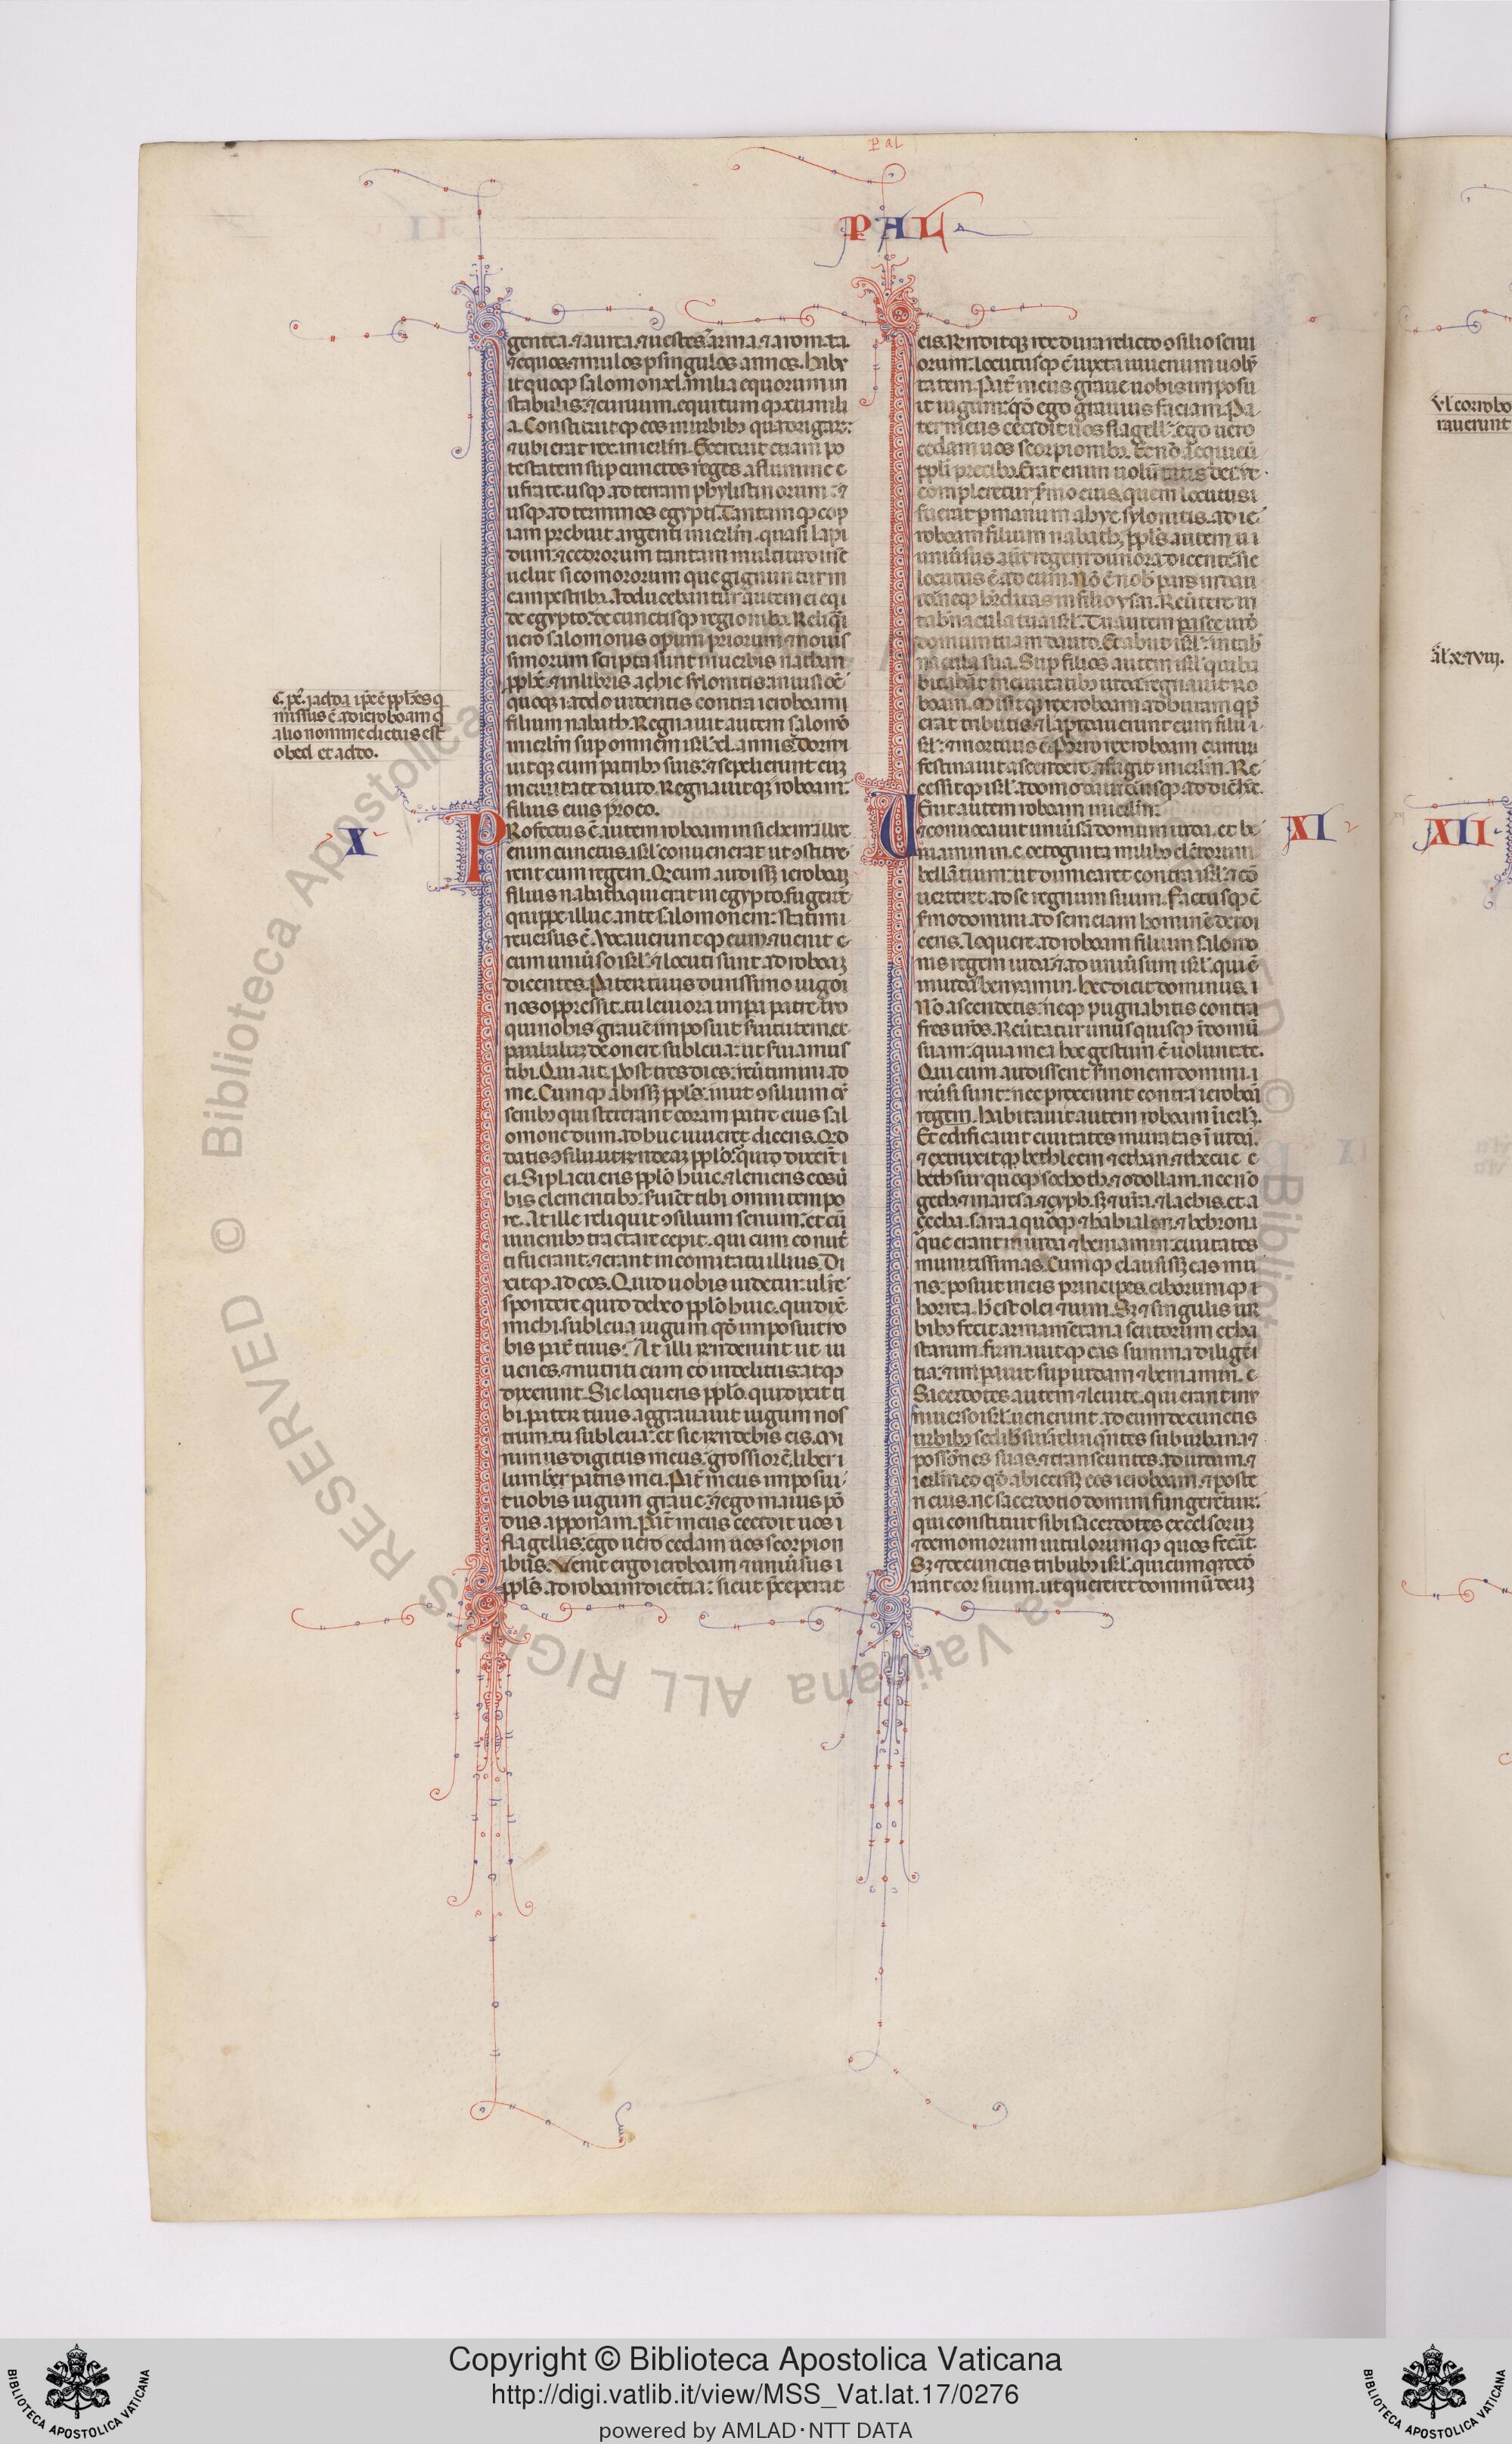 PAL
gentea. ⁊ aurea. ⁊ uestes. ⁊ arma. ⁊ aromata.
⁊ equos. ⁊ mulos p singulos annos. Habu
it quoqꝫ salomon xl. milia equorum in
stabulis: ⁊ curruum. equitum qꝫ xii. mili
a. Constituitqꝫ eos in urbibꝫ quadrigarꝫ:
⁊ ubi erat rex in ierl̅m. Exercuit etiam po
testatem sup cunctos reges a flumine e
ufrate. usqꝫ ad terram phylistinorum: ⁊
usqꝫ ad terminos egypti. Tantam qꝫ cop
iam prebuit argenti in ierl̅m. quasi lapi
dum: ⁊ cedrorum tantam multitudinē
uelut sicomororum que gignuntur in
campestribꝫ. Adducebantur autem ei equi
de egypto. de cunctisqꝫ regionibꝫ. Reliq̅
uero salomonis opum priorum ⁊ nouis
simorum scripta sunt in uerbis nathan
pph̅e. ⁊ in libris achie sylonitis. in uisiōē
quoqꝫ iaddo uidentis contra ieroboam
filium nabath. Regnauit autem salomō
in ierl̅m sup omnem isrl̅. xl. annis. dormi
uitqꝫ cum patribꝫ suis: ⁊ sepelierunt euꝫ
in ciuitate dauid. Regnauitqꝫ roboam:
filius eius pro eo.
X
PRofectus ē autem roboam in sichem: illuc
enim cunctus isrl̅ conuenerat ut ↄstitue
rent eum regem. Qd̅ cum audissꝫ ieroboaꝫ
filius nabath. qui erat in egypto. fugerat
quippe illuc ante salomonem: statim
reuersus ē. Vocaueruntqꝫ eum. ⁊ uenit
cum uniūso isrl̅. ⁊ locuti sunt ad roboaꝫ
dicentes. Pater tuus durissimo iugo
nos oppressit. tu leuiora impa patre tuo
qui nobis grauē imposuit seruitutem. et
paululuꝫ de onere subleua: ut seruiamus
tibi. Qui ait. Post tres dies: reūtimini ad
me. Cumqꝫ abissꝫ ppl̅s: iniit ↄsilium cū
senibꝫ qui steterant coram patre eius sal
omone dum adhuc uiueret dicens. Qd̅
datis ↄsilii. ut rn̅deaꝫ ppl̅o. Qui dixerūt
ei. Si placueris ppl̅o huic. ⁊ lenieris eos ū
bis clementibꝫ: seruiēt tibi omni tempo
re. At ille reliquit ↄsilium senum: et cū
iuuenibꝫ tractare cepit. qui cum eo nut̅
ti fuerant: ⁊ erant in comitatu illius. Di
xitqꝫ ad eos. Quid uobis uidetur: uel re
spondere quid debeo ppl̅o huic. qui dix̅
michi. subleua iugum qd̅ imposuit no
bis pat̅ tuus: At illi rn̅derunt ut iu
uenes. ⁊ nutriti cum eo in delitiis: atqꝫ
dixerunt. Sic loqueris ppl̅o. qui dixit ti
bi. pater tuus aggrauauit iugum nos
trum. tu subleua: et sic rn̅debis eis. Mi
nimus digitus meus: grossior ē. liber
lumbꝫ patris mei. Pat̅ meus imposui
t uobis iugum graue: ⁊ ego maius pō
dus apponam. Pat̅ meus cecidit uos
flagellis: ego uero cedam uos scorpion
ibus. Venit ergo ieroboam ⁊ uniūsus
ppl̅s. ad roboam die tertia: sicut p̅ceperat
C. pē. iadda ipe ē pph̅es q
missus ē ad ieroboam q
alio nomine dictus est
obed et addo.
eis. Rn̅ditqꝫ rex dura relicto ↄsilio seni
orum: locutusqꝫ ē iuxta iuuenum uolū
tatem. Pat̅ meus graue uobis imposu
it iugum: qd̅ ego grauius faciam. Pa
ter meus cecidit uos flagell̅: ego uero
cedam uos scorpionibꝫ. Et nō acquieū
ppl̅i precibꝫ. Erat enim uolūtatis dei. ut
compleretur s̅mo eius. quem locutus
fuerat p manum ahye sylonitis. ad ie
roboam filium nabath. ppl̅s autem u
niūsus aūt rege duriora dicente: sic
locutus ē ad eum. Nō ē nob̅ pars in dau
id: neqꝫ hereditas in filio ysai. Reūtere in
tab̅nacula tua isrl̅. Tu autem pasce
domum tuam dauid. Et abiit isrl̅: in tab̅
nacula sua. Sup filios autem isrl̅ qui ha
bitabāt in ciuitatibꝫ iuda: regnauit ro
boam. Misitqꝫ rex roboam aduram q p̅
erat tributis. ⁊ lapidauerunt eum filii
isrl̅: ⁊ mortuus ē. Porro rex roboam currū
festinauit ascendere. ⁊ fugit in ierl̅m. Re
cessitqꝫ isrl̅ a domo dauid: usqꝫ ad diē hāc.
XI
UEnit autem roboam in ierl̅m:
⁊ conuocauit uniūsā domum iuda. et be
niamin in. c. octoginta milibꝫ electorum
bellātium: ut dimicaret contra isrl̅. ⁊ cō
uerteret ad se regnum suum. Factusqꝫ ē
s̅mo domini. ad semeiam hominē dei di
cens. Loquere ad roboam filium salomo
nis regem iuda: ⁊ ad uniūsum isrl̅. qui ē
in iuda ⁊ benyamin. Hec dicit dominus.
Nō ascendetis: neqꝫ pugnabitis contra
fres ur̅os. Reūtatur unusquisqꝫ ī domū
suam: quia mea hoc gestum ē uoluntate.
Qui cum audissent s̅monem domini.
reūsi sunt: nec prexerunt contra ieroboā
regem. Habitauit autem roboam ī ierl̅ꝫ.
Et edificauit ciuitates muratas ī iuda.
⁊ extruxitqꝫ bethleem ⁊ ethan ⁊ thecue
bethsur quoqꝫ. socboth. ⁊ odollam. nec nō
geth. ⁊ maresa. ⁊ cyph. sꝫ ⁊ ura. ⁊ lachis. et a
çecha. saraa quoqꝫ ⁊ hahialon. ⁊ hebron.
que erant in iuda ⁊ beniamin: ciuitates
munitissimas. Cumqꝫ clausissꝫ eas mu
ris: posuit in eis principes. ciborumqꝫ
horrea. h̅ est olei ⁊ uini. Sꝫ ⁊ singulis ur
bibꝫ fecit armamētaria scutorum et ha
starum. firmauitqꝫ eas summa diligēt
tia: ⁊ imperauit sup iudam ⁊ beniamin.
Sacerdotes autem ⁊ leuite. qui erant in u
niuerso isrl̅. uenerunt ad eum de cunctis
urbibꝫ sedibꝫ suis. relinquētes suburbana ⁊
possiōnes suas. ⁊ transeuntes ad iudam. ⁊
ierl̅m. eo qd̅ abiecissꝫ eos ieroboam. ⁊ poste
ri eius. ne sacerdotio domini fungerētur:
qui constituit sibi sacerdotes excelsoruꝫ
⁊ demoniorum uitulorumqꝫ quos fecāt.
Sꝫ ⁊ de cunctis tribubꝫ isrl̅. quicumqꝫ dedē
rant cor suum. ut quererent dominū deuꝫ
Vl corrobo
rauerunt
XII
Copyright © Biblioteca Apostolica Vaticana
http://digi.vatlib.it/view/MSS_Vat.lat.17/0276
powered by AMLAD·NTT DATA
BIBLIOTECA APOSTOLICA VATICANA
BIBLIOTECA APOSTOLICA VATICANA
© Biblioteca Apostolica Vaticana ALL RIGHTS RESERVED